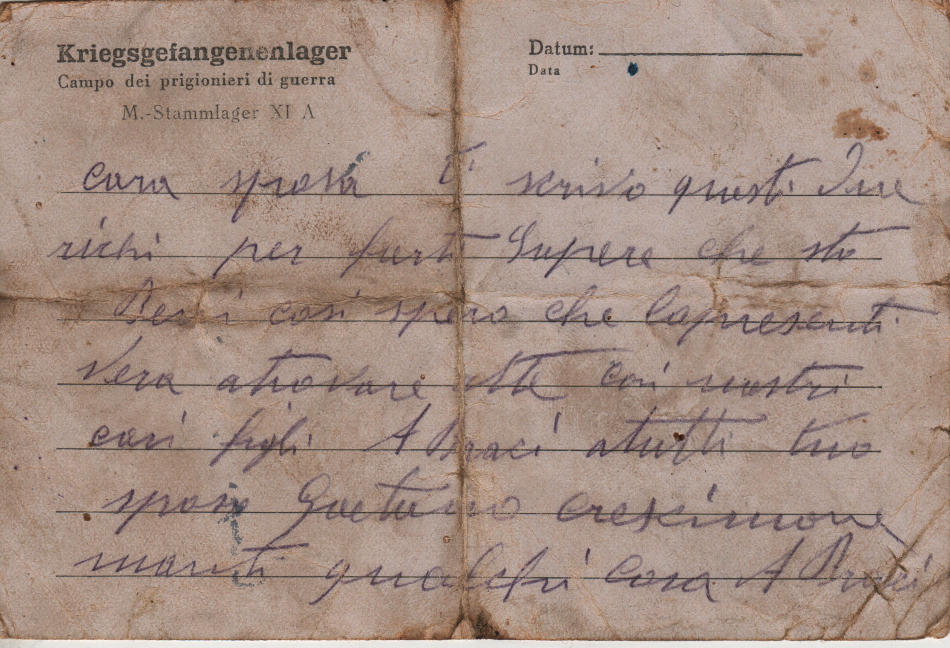 Kriegsgefangenenlager
Campo dei prigionieri di guerra
M.-Stammlager XI A
Datum:
Data
cara sposa ti scrivo questi due
richi per farti Sapere che sto
Beni così spero che lapresenti
Vera atrovare atte coi nostri
cari figli A Braci atutti tuo
sposo Gaetano crescimone
manti qualchi cosa A Braci